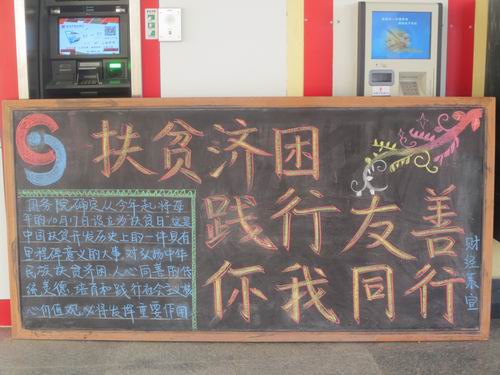 扶贫济困
践行友善
你我同行
国务院确定从今年起,将每
年的10月17日设立为"扶贫日"这是
中国扶贫开发历史上的一件具有
里程碑意义的大事.对弘扬中华
民族扶贫济困.人心向善的传
统美德,培育和践行社会主义核
心价值观,必将发挥重要作用
财经系宣